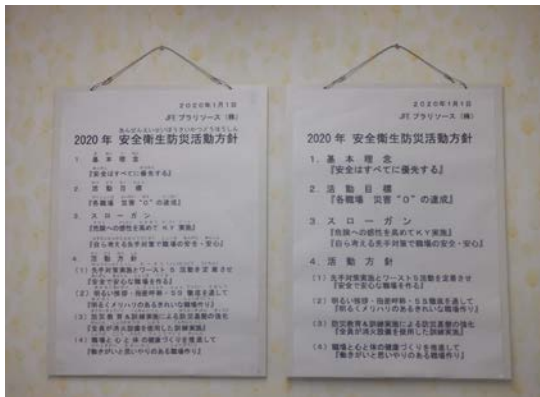 2020年1月1日
JFE プラリソース (株)
あんぜんえいせいぼうさいかつどうほうしん
2020年 安全衛生防災活動方針
1. 基本理念
『安全はすべてに優先する』
2. 活動目標
『各職場 災害“0”の達成』
3. スローガン
『危険への感性を高めてKY実施』
『自ら考える先手対策で職場の安全・安心』
4. 活動方針
(1) 先手対策実施とワースト5活動を定着させ
『安全で安心な職場を作る』
(2) 明るい挨拶・指差呼称・5S徹底を通して
『明るくメリハリのあるきれいな職場作り』
(3) 防災教育&訓練実施による防災基盤の強化
『全員が消火設備を使用した訓練実施』
(4) 職場と心と体の健康づくりを推進して
『働きがいと思いやりのある職場作り』
2020年1月1日
JFE プラリソース (株)
2020年 安全衛生防災活動方針
1. 基本理念
『安全はすべてに優先する』
2. 活動目標
『各職場 災害“0”の達成』
3. スローガン
『危険への感性を高めてKY実施』
『自ら考える先手対策で職場の安全・安心』
4. 活動方針
(1) 先手対策実施とワースト5活動を定着させ
『安全で安心な職場を作る』
(2) 明るい挨拶・指差呼称・5S徹底を通して
『明るくメリハリのあるきれいな職場作り』
(3) 防災教育&訓練実施による防災基盤の強化
『全員が消火設備を使用した訓練実施』
(4) 職場と心と体の健康づくりを推進して
『働きがいと思いやりのある職場作り』